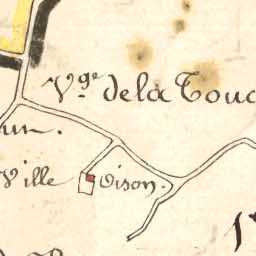 V.ge de la Touc
un.
Ville oison.